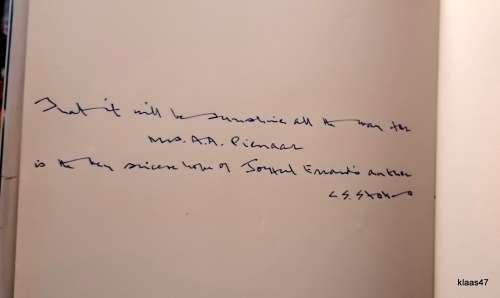 That it will be sunshine all the way for
Mrs. A.A. Pienaar
is the very sincere hope of Joyful Errand's author
C.S. Stokes
klaas47